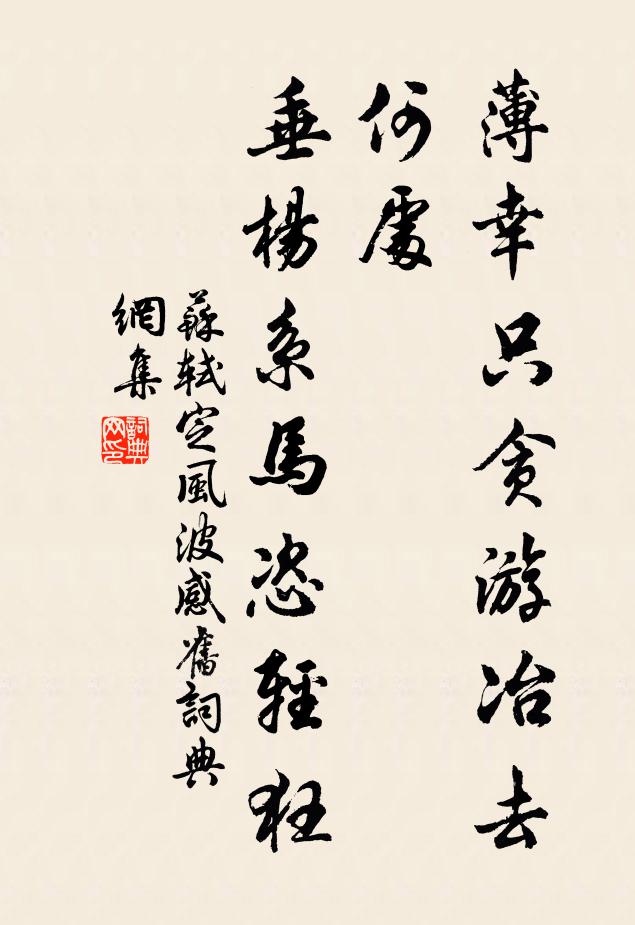 薄幸只貪游冶去
何處
垂楊系馬恣輕狂
蘇軾定風波感舊詞典
網集
詞典網印